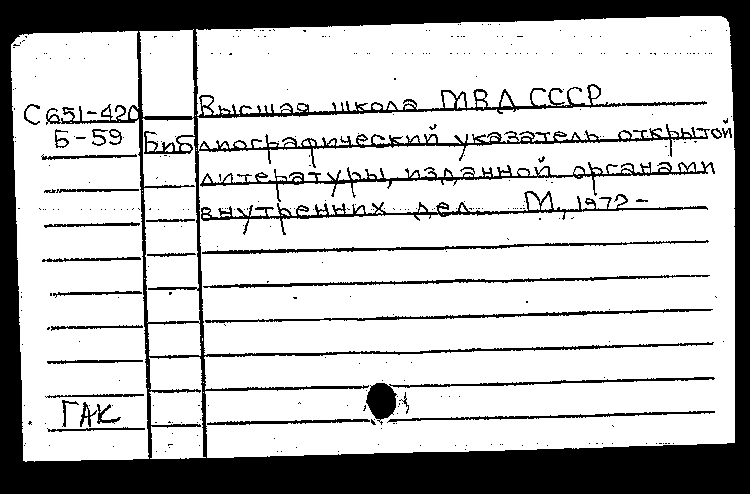 С651-420 Высшая школа МВД СССР
Б-59 Библиографический указатель открытой
литературы, изданной органами
внутренних дел. М., 1972-
ГАК